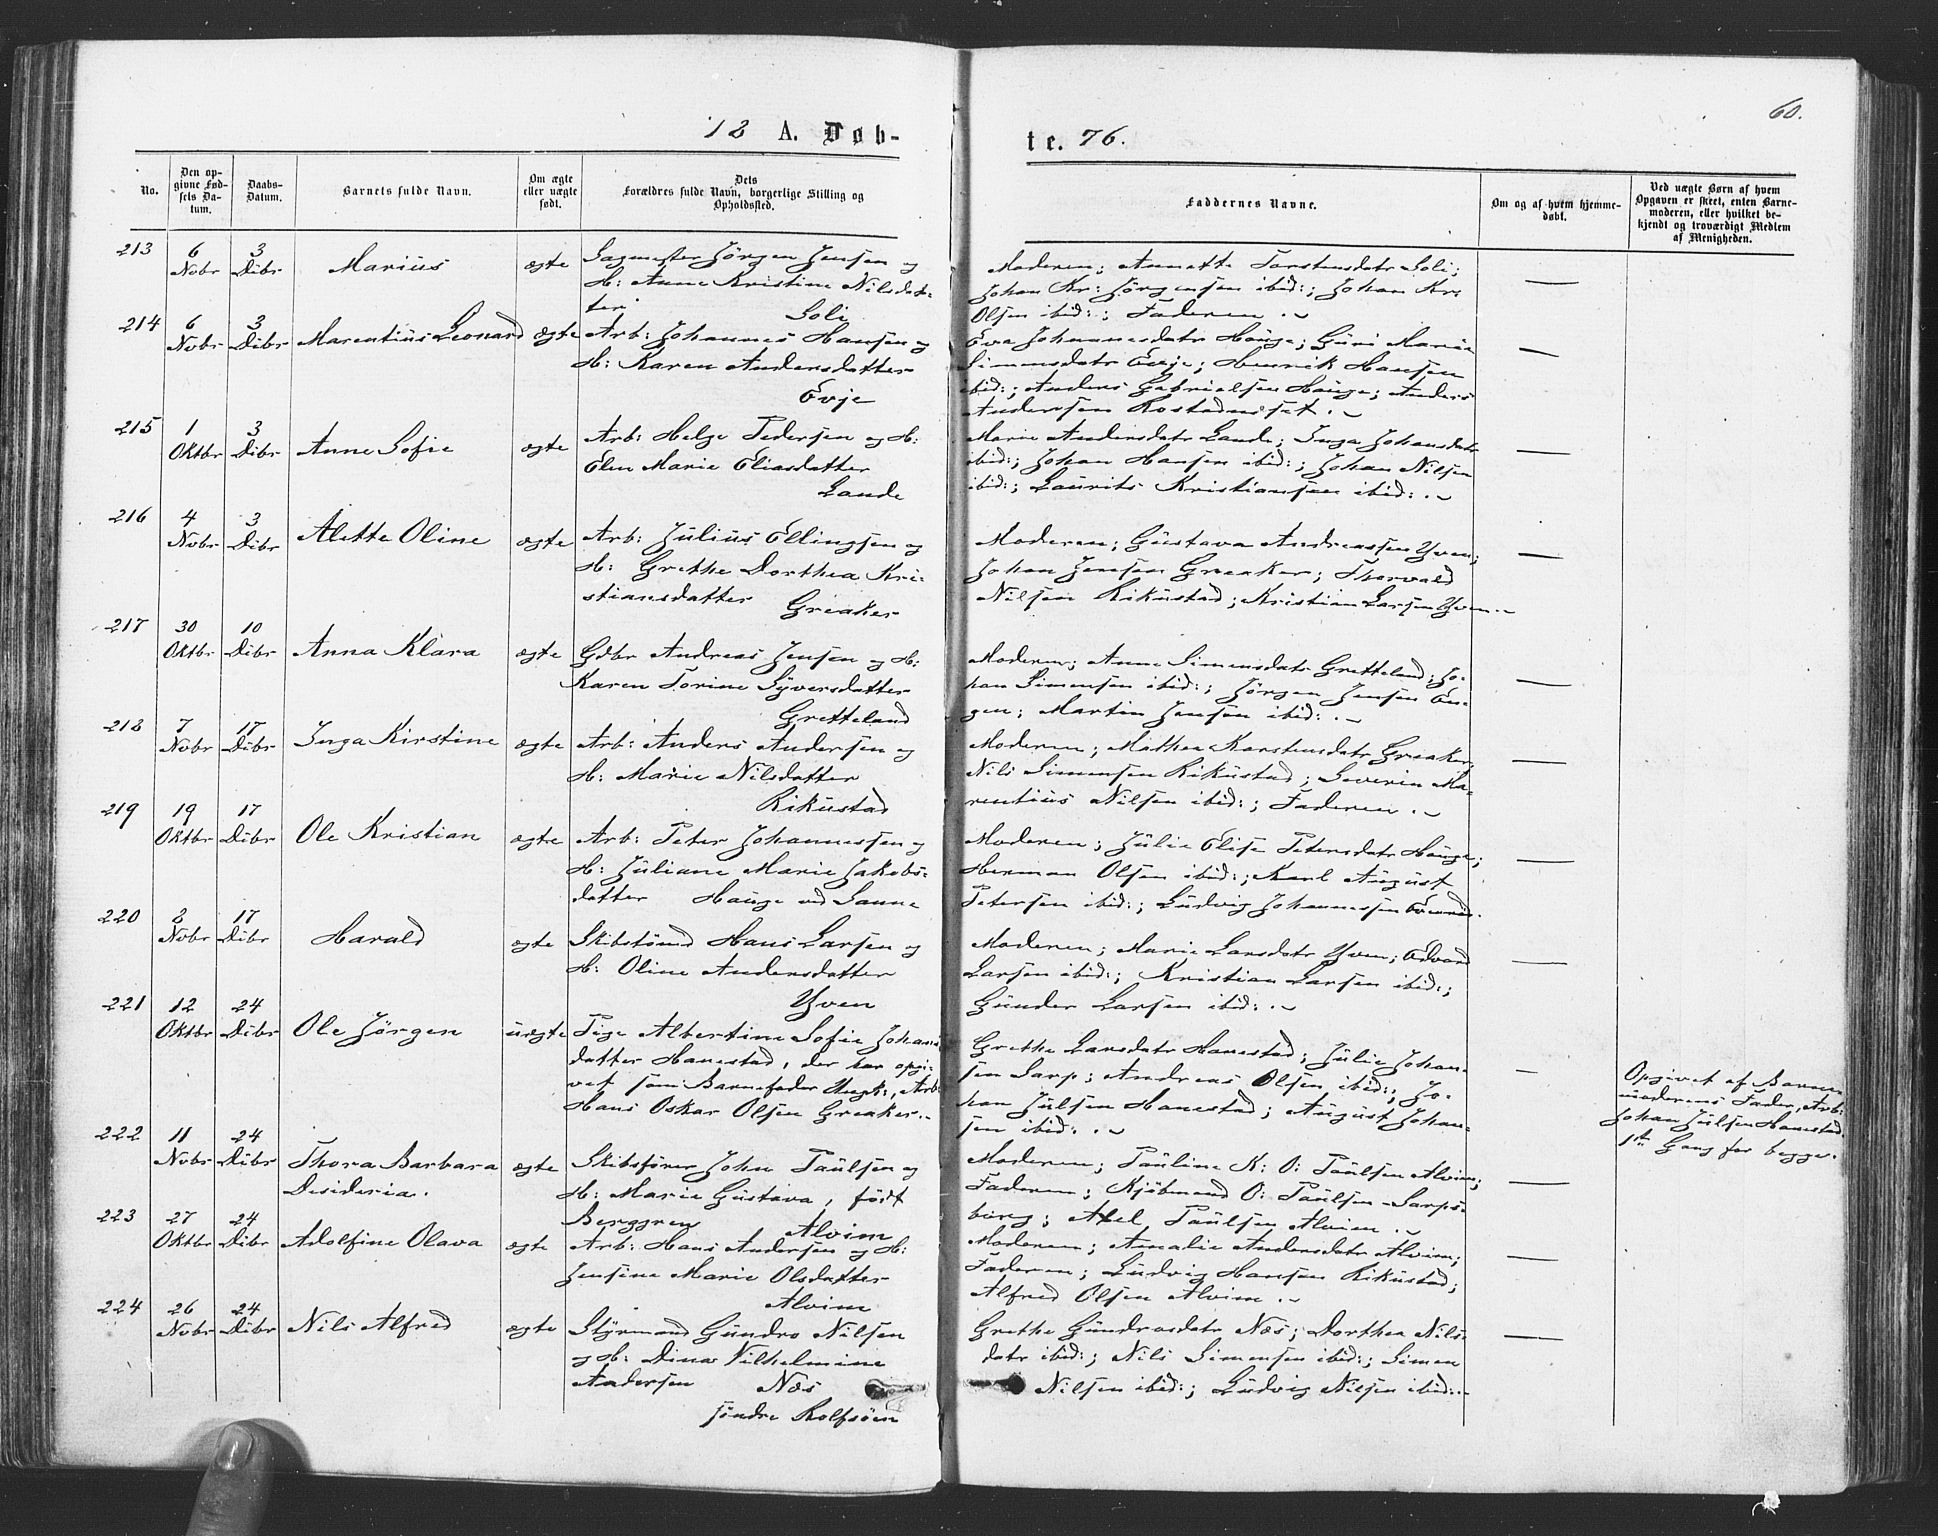 60.
18 A. Døb-
te. 76.
No.
Den op-
givne Fød-
sels Da-
tum.
Daabs-
Datum.
Barnets fulde Navn.
Om ægte
eller uægte
født.
Dets
Forældres fulde Navn, borgerlige Stilling og
Opholdssted.
Faddernes Navne.
Om og af hvem hjemme-
døbt.
Ved uægte Børn af hvem
Opgaven er skeet, enten Barne-
moderen, eller hvilket be-
kjendt og troværdigt Medlem
af Menigheden.
213
6
Novbr
3
Dcbr
Marius
ægte
Sagmester Jørgen Jensen og
H: Anne Kristine Nilsdat-
ter
Soli
Moderen; Annette Torstensdatr Soli;
Johan Kr: Jørgensen ibid:; Johan Kr:
Olsen ibid:; Faderen.
214
6
Novbr
3
Dcbr
Marentius Leonard
ægte
Arb: Johannes Hansen og
H: Karen Andersdatter
Evje
Eva Johannesdatr Hauge; Guri Marie
Simensdatr Evje; Henrik Hansen
ibid:; Anders Gabrielsen Hauge; Anders
Andersen Rostadneset.
215
1
Oktbr
3
Dcbr
Anne Sofie
ægte
Arb: Helge Pedersen og H:
Elen Marie Eliasdatter
Lande
Marie Andersdatr Lande; Inga Johansdatr
ibid:; Johan Hansen ibid:; Johan Nilsen
ibid:; Laurits Kristiansen ibid:.
216
4
Novbr
3
Dcbr
Alette Oline
ægte
Arb: Julius Ellingsen og
H: Grethe Dorthea Kri-
stiansdatter
Greaker
Moderen; Gustava Andreassen Yven;
Johan Jensen Greaker; Thorvald
Nilsen Rikustad; Kristian Larsen Yven.
217
30
Oktbr
10
Dcbr
Anna Klara
ægte
Gdbr Andreas Jensen og H:
Karen Torine Syversdatter
Gretteland
Moderen; Anne Simensdatr Gretteland; Jo-
han Simensen ibid:; Jørgen Jensen En-
gen; Martin Jensen ibid:.
218
7
Novbr
17
Dcbr
Inga Kirstine
ægte
Arb: Anders Andersen og
H: Marie Nilsdatter
Rikustad
Moderen; Mathea Karstensdatr Greaker;
Nils Simensen Rikustad; Severin Ma-
rentius Nilsen ibid:; Faderen.
219
19
Oktbr
17
Dcbr
Ole Kristian
ægte
Arb: Peter Johannessen og
H: Juliane Marie Jakobs-
datter Hauge ved Sanne
Moderen; Julie Elise Petersdatr Hauge;
Herman Olsen ibid:; Karl August
Petersen ibid:; Ludvig Johannessen
220
2
Novbr
17
Dcbr
Harald
ægte
Skibstømd Hans Larsen og
H: Oline Andersdatter
Yven
Moderen; Marie Larsdatr Yven; Edvard
Larsen ibid:; Kristian Larsen ibid:;
Gunder Larsen ibid:.
221
12
Oktbr
24
Dcbr
Ole Jørgen
uægte
Pige Albertine Sofie Johans
datter Hanestad, der har opgi-
vet som Barnefader Ungk:, Arb:
Hans Oskar Olsen Greaker.
Grethe Larsdatr Hanestad; Julie Johan-
sen Sarp; Andreas Olsen ibid:; Jo-
han Julsen Hanestad; August Johan-
sen ibid:.
Opgivet af Barne-
moderens Fader, Arb:
Johan Julsen Hanestad.
1ste Gang for begge.
222
11
Novbr
24
Dcbr
Thora Barbara
Desideria.
ægte
Skibsfører John Paulsen og
H: Marie Gustava, født
Berggren
Alvim
Moderen; Pauline K: O: Paulsen Alvim;
Faderen; Kjøbmand O: Paulsen-Sarps-
borg; Axel Paulsen Alvim.
223
27
Oktbr
24
Dcbr
Adolfine Olava
ægte
Arb: Hans Andersen og H:
Jensine Marie Olsdatter
Alvim
Moderen; Amalie Andersdatr Alvim;
Faderen; Ludvig Hansen Rikustad;
Alfred Olsen Alvim.
224
26
Novbr
24
Dcbr
Nils Alfred
ægte
Styrmand Gundro Nilsen
og H: Dina Vilhelmine
Andersen Næs
søndre Rolfsøen
Grethe Gundrosdatr Næs; Dorthea Nils-
datr ibid:; Nils Simensen ibid:; Simen
Nilsen ibid:; Ludvig Nilsen ibid:.